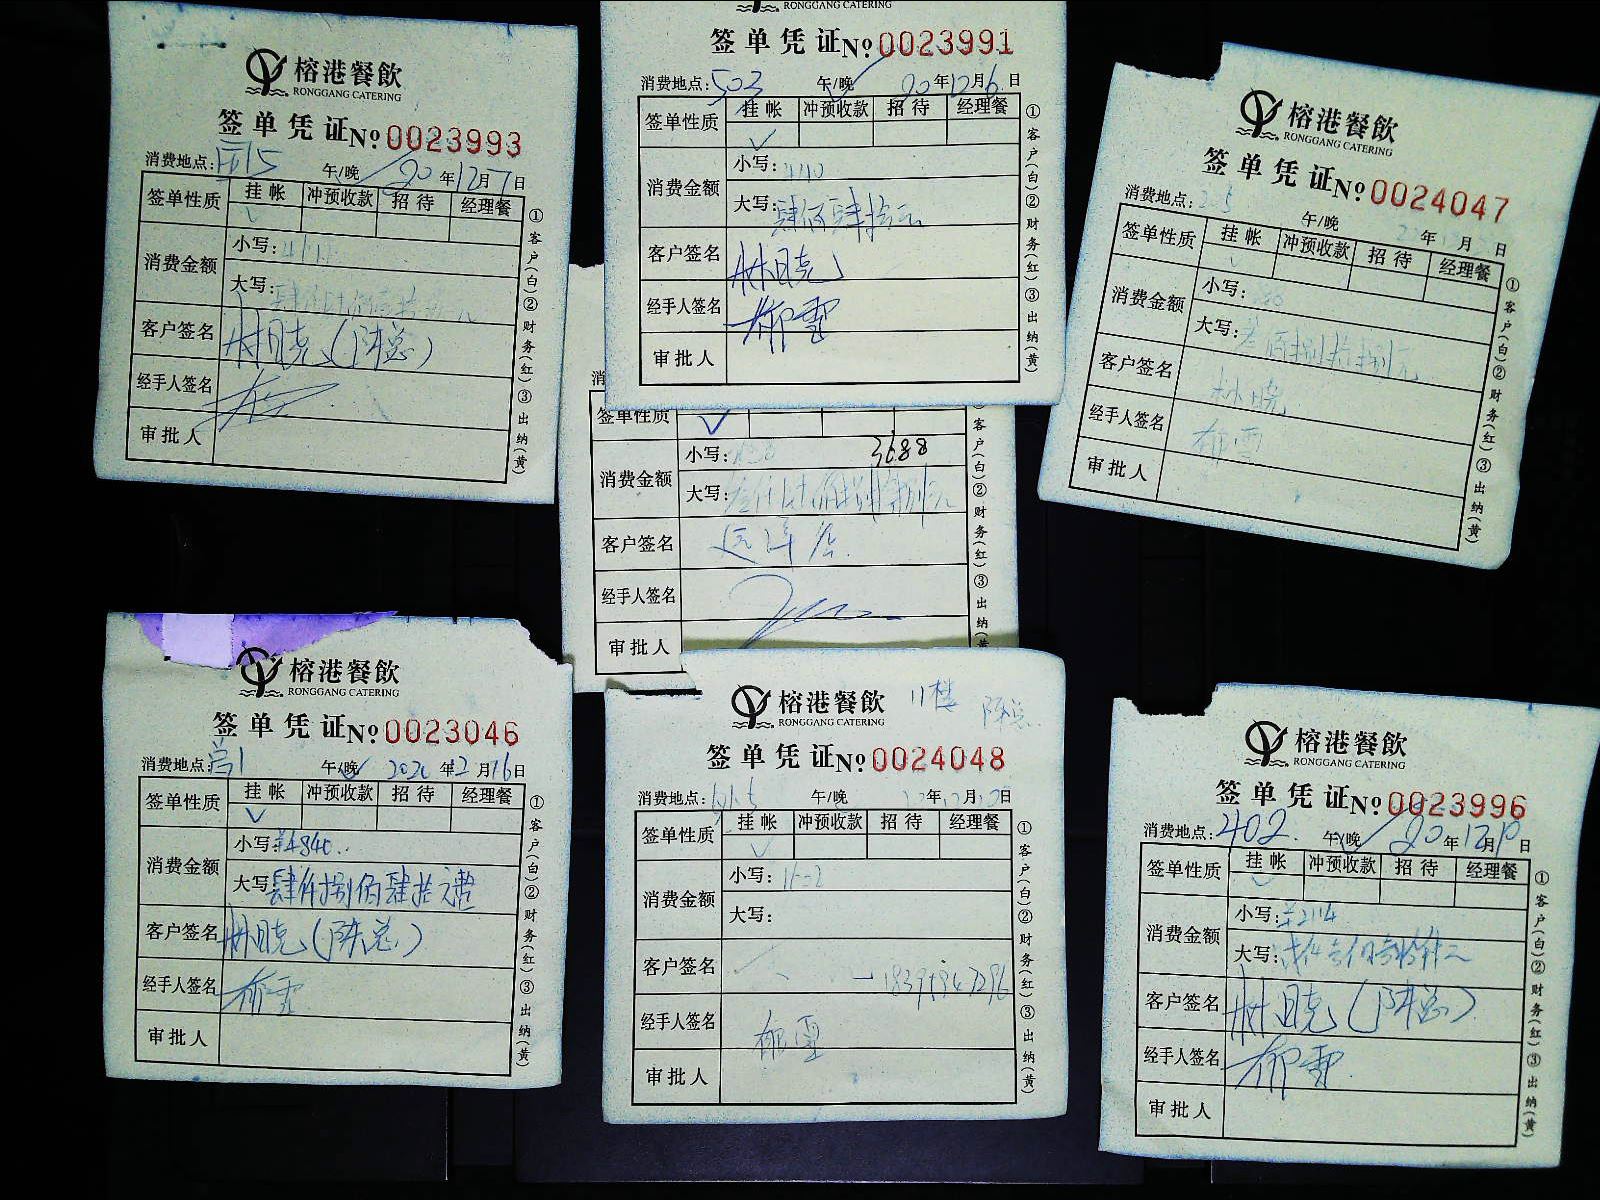 榕港餐飲
RONGGANG CATERING
签单凭证 No 0023993
消费地点: 午/晚 20年12月7日
签单性质 挂帐 冲预收款 招待 经理餐
消费金额 小写:
大写:
客户签名 林晓(陈总)
经手人签名
审批人
①客户(白)②财务(红)③出纳(黄)
RONGGANG CATERING
签单凭证 No 0023991
消费地点: 503 午/晚 20年12月6日
签单性质 挂帐 冲预收款 招待 经理餐
消费金额 小写: 440
大写: 肆佰肆拾元
客户签名 林晓
经手人签名 郁雪
审批人
①客户(白)②财务(红)③出纳(黄)
榕港餐飲
RONGGANG CATERING
签单凭证 No 0024047
消费地点: 午/晚 年 月 日
签单性质 挂帐 冲预收款 招待 经理餐
消费金额 小写:
大写: 叁佰捌拾捌元
客户签名 林晓
经手人签名 郁雪
审批人
①客户(白)②财务(红)③出纳(黄)
签单性质
消费金额 小写: 3688
大写:
客户签名
经手人签名
审批人
客户(白)②财务(红)③出纳(黄)
榕港餐飲
RONGGANG CATERING
签单凭证 No 0023046
消费地点: 午/晚 2020年12月16日
签单性质 挂帐 冲预收款 招待 经理餐
消费金额 小写: ¥4840
大写: 肆仟捌佰肆拾元整
客户签名 林晓(陈总)
经手人签名 郁雪
审批人
①客户(白)②财务(红)③出纳(黄)
榕港餐飲 11楼 陈总
RONGGANG CATERING
签单凭证 No 0024048
消费地点: 午/晚 年 月 日
签单性质 挂帐 冲预收款 招待 经理餐
消费金额 小写:
大写:
客户签名
经手人签名 郁雪
审批人
①客户(白)②财务(红)③出纳(黄)
榕港餐飲
RONGGANG CATERING
签单凭证 No 0023996
消费地点: 402 午/晚 20年12月 日
签单性质 挂帐 冲预收款 招待 经理餐
消费金额 小写: ¥2114
大写:
客户签名 林晓(陈总)
经手人签名 郁雪
审批人
①客户(白)②财务(红)③出纳(黄)